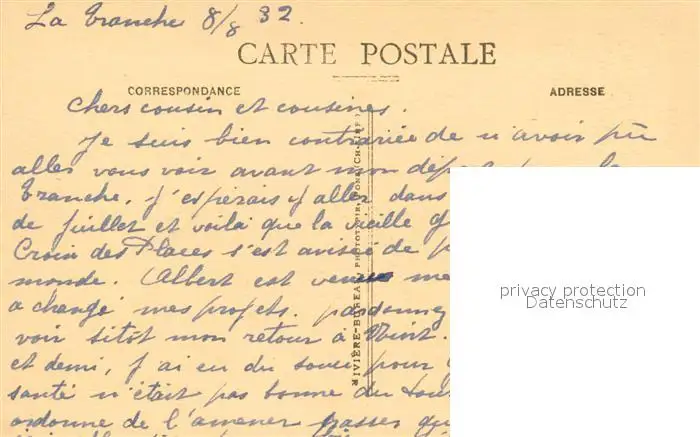 La Tranche 8/8 32.
CARTE POSTALE
CORRESPONDANCE
ADRESSE
chers cousin et cousines.
Je suis bien contrariée de n'avoir pu
aller vous voir avant mon
Tranche. J'espérais y aller dans
de juillet et voilà que la vieille
Croix des Places s'est avisée de
monde. Albert est
a changé mes projets. pardonnez
voir sitôt mon retour à Niort.
et demi, j'ai eu du souci pour
santé n'était pas bonne du
ordonne de l'amener passer
privacy protection
Datenschutz